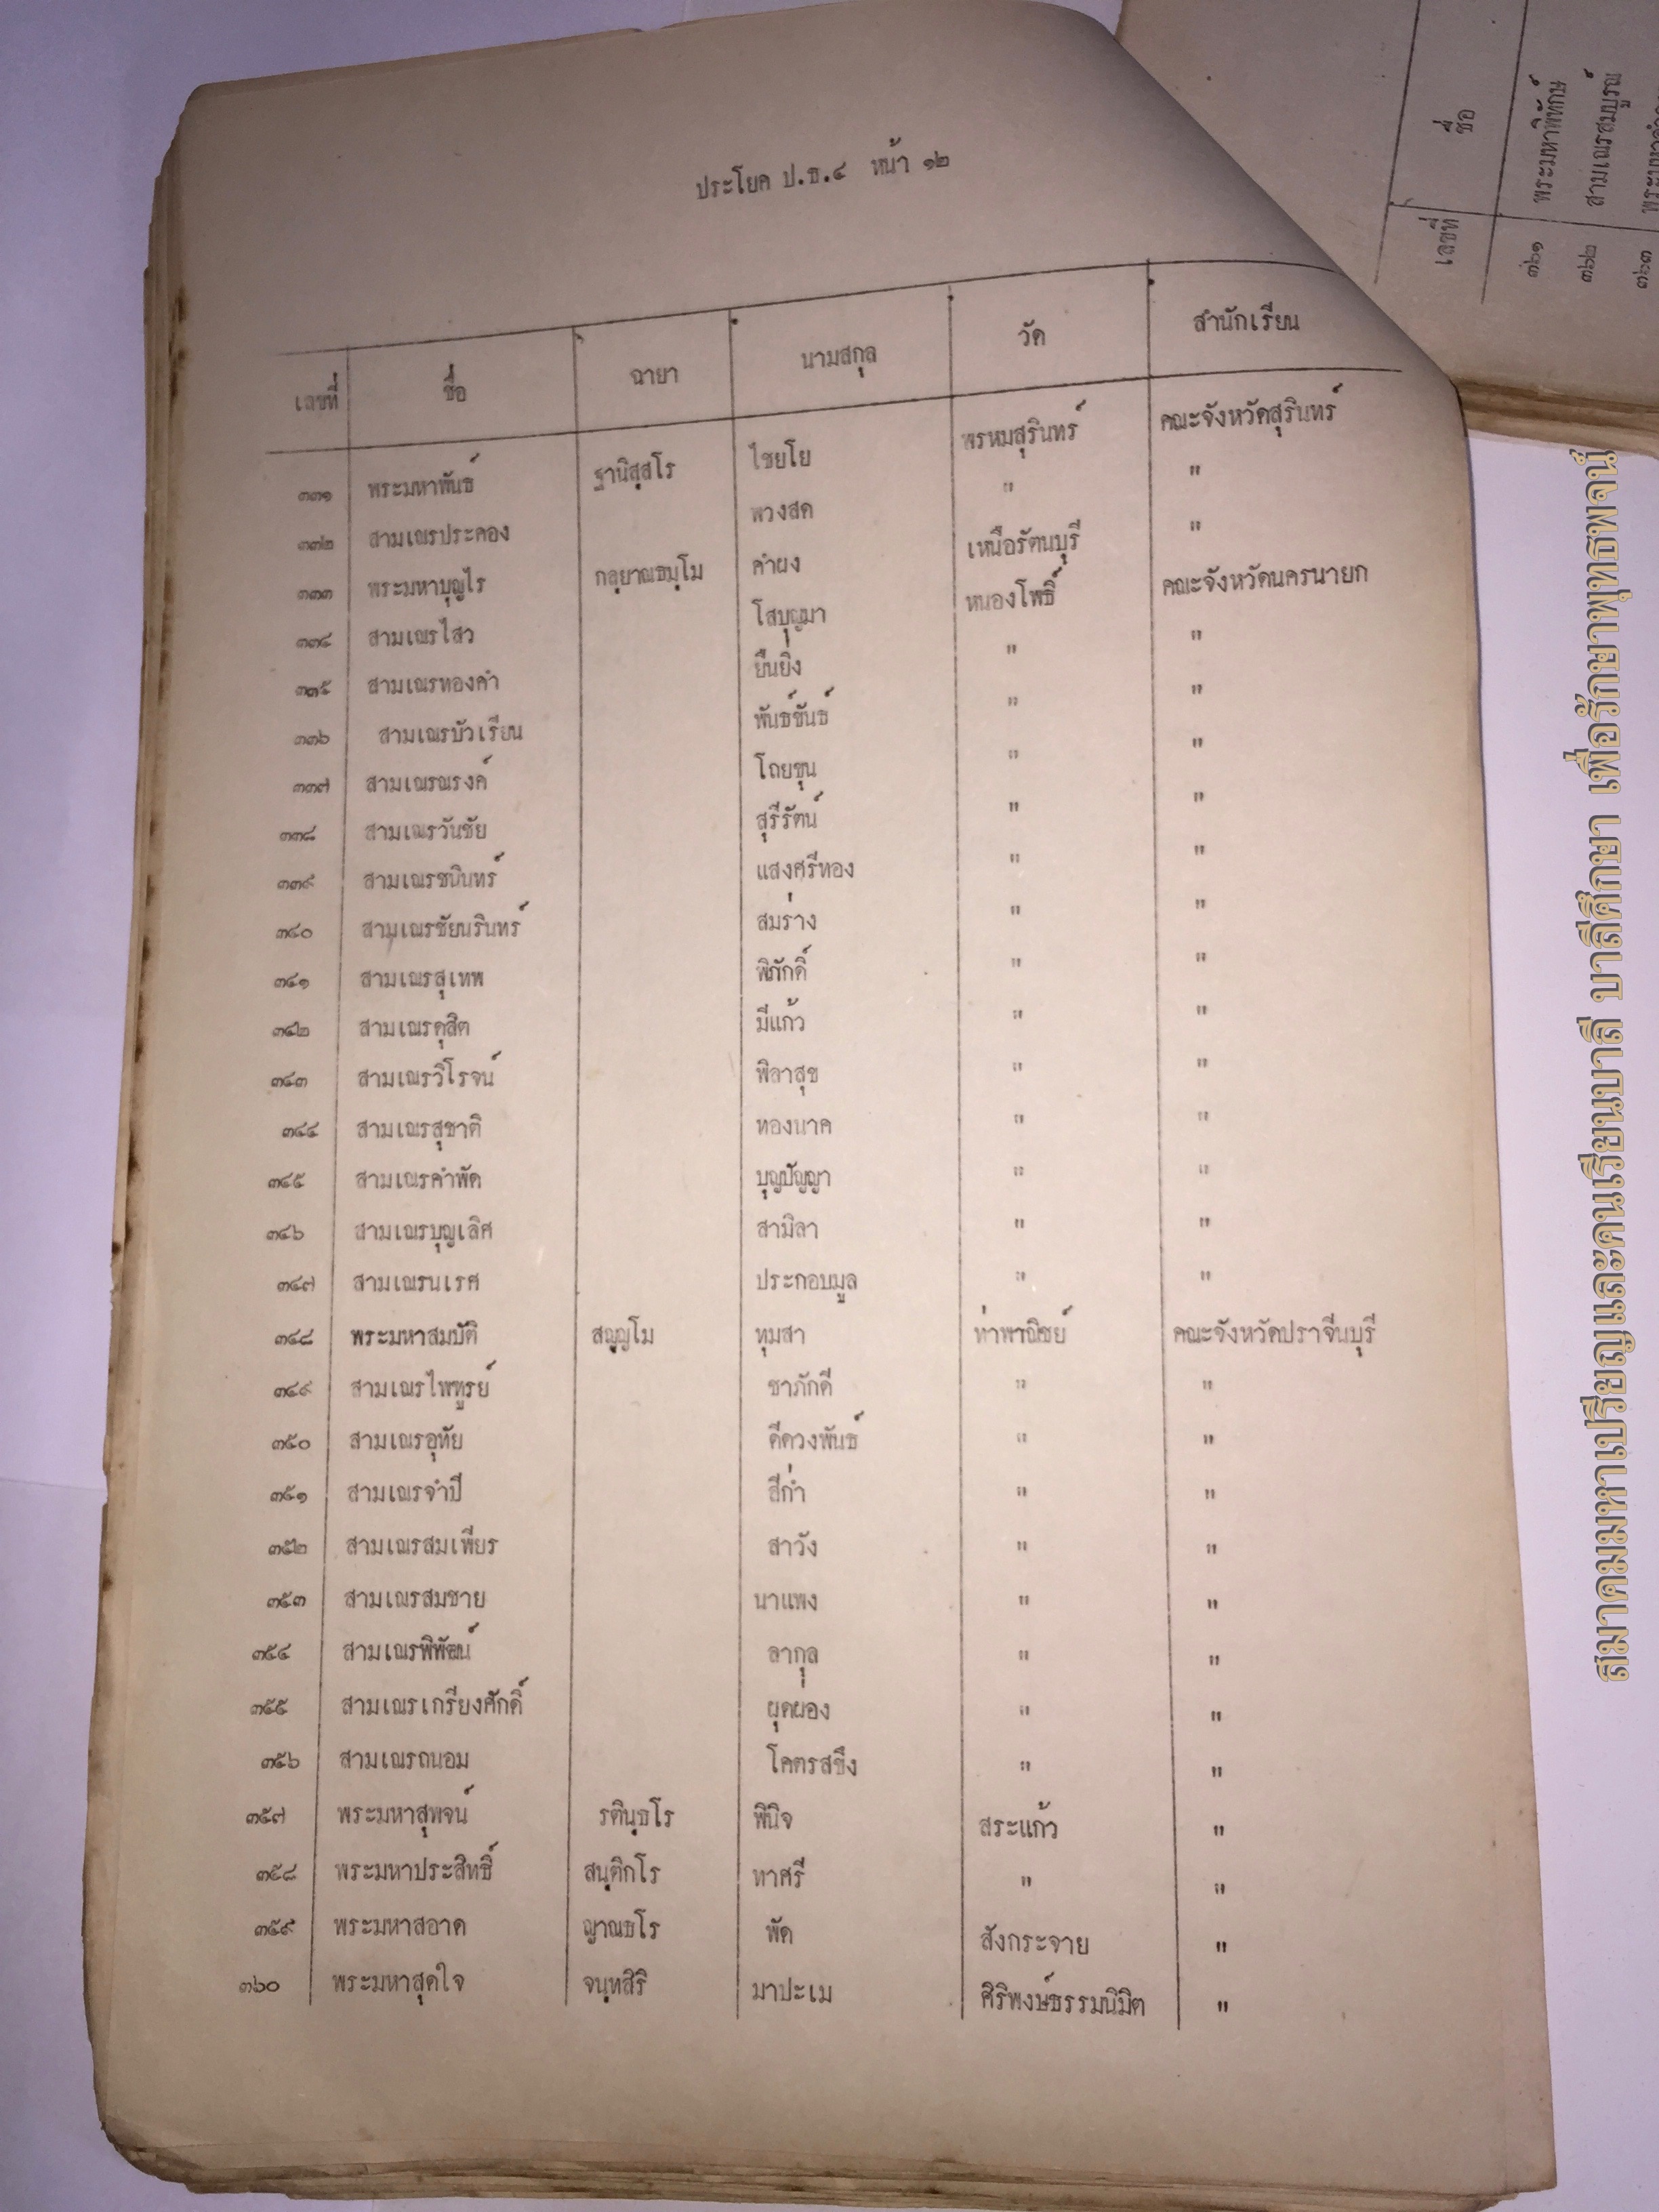 ประโยค ป.ธ.๔ หน้า ๑๒
เลขที่ ชื่อ ฉายา นามสกุล วัด สำนักเรียน
๓๓๑ พระมหาพันธ์ ฐานิสฺสโร ไชยโย พรหมสุรินทร์ คณะจังหวัดสุรินทร์
๓๓๒ สามเณรประคอง พวงสด " "
๓๓๓ พระมหาบุญไร กลฺยาณธมฺโม คำผง เหนือรัตนบุรี "
๓๓๔ สามเณรไสว โสบุญมา หนองโพธิ์ คณะจังหวัดนครนายก
๓๓๕ สามเณรทองคำ ยืนยิ่ง " "
๓๓๖ สามเณรบัวเรียน พันธ์ขันธ์ " "
๓๓๗ สามเณรณรงค์ โถยชุน " "
๓๓๘ สามเณรวันชัย สุรีรัตน์ " "
๓๓๙ สามเณรชนินทร์ แสงศรีทอง " "
๓๔๐ สามเณรชัยนรินทร์ สมร่าง " "
๓๔๑ สามเณรสุเทพ พิภักดิ์ " "
๓๔๒ สามเณรดุสิต มีแก้ว " "
๓๔๓ สามเณรวิโรจน์ พิลาสุข " "
๓๔๔ สามเณรสุชาติ ทองนาค " "
๓๔๕ สามเณรคำพัด บุญปัญญา " "
๓๔๖ สามเณรบุญเลิศ สามิลา " "
๓๔๗ สามเณรนเรศ ประกอบมูล " "
๓๔๘ พระมหาสมบัติ สญฺญโม หุมสา ท่าพาณิชย์ คณะจังหวัดปราจีนบุรี
๓๔๙ สามเณรไพฑูรย์ ชาภักดี " "
๓๕๐ สามเณรอุทัย ดีดวงพันธ์ " "
๓๕๑ สามเณรจำปี สีก่ำ " "
๓๕๒ สามเณรสมเพียร สาวัง " "
๓๕๓ สามเณรสมชาย นาแพง " "
๓๕๔ สามเณรพิพัฒน์ ลากุล " "
๓๕๕ สามเณรเกรียงศักดิ์ ผุดผ่อง " "
๓๕๖ สามเณรถนอม โคตรสขึง " "
๓๕๗ พระมหาสุพจน์ รตินฺธโร พินิจ สระแก้ว "
๓๕๘ พระมหาประสิทธิ์ สนฺติกโร หาศรี " "
๓๕๙ พระมหาสอาด ญาณธโร พัด สังกระจาย "
๓๖๐ พระมหาสุดใจ จนฺทสิริ มาปะเม ศิริพงษ์ธรรมนิมิต "
เลขที่ ชื่อ
๓๖๑ พระมหาพิทักษ์
๓๖๒ สามเณรสมบูรณ์
๓๖๓
สมาคมมหาเปรียญและคนเรียนบาลี บาลีศึกษา เพื่อรักษาพุทธพจน์